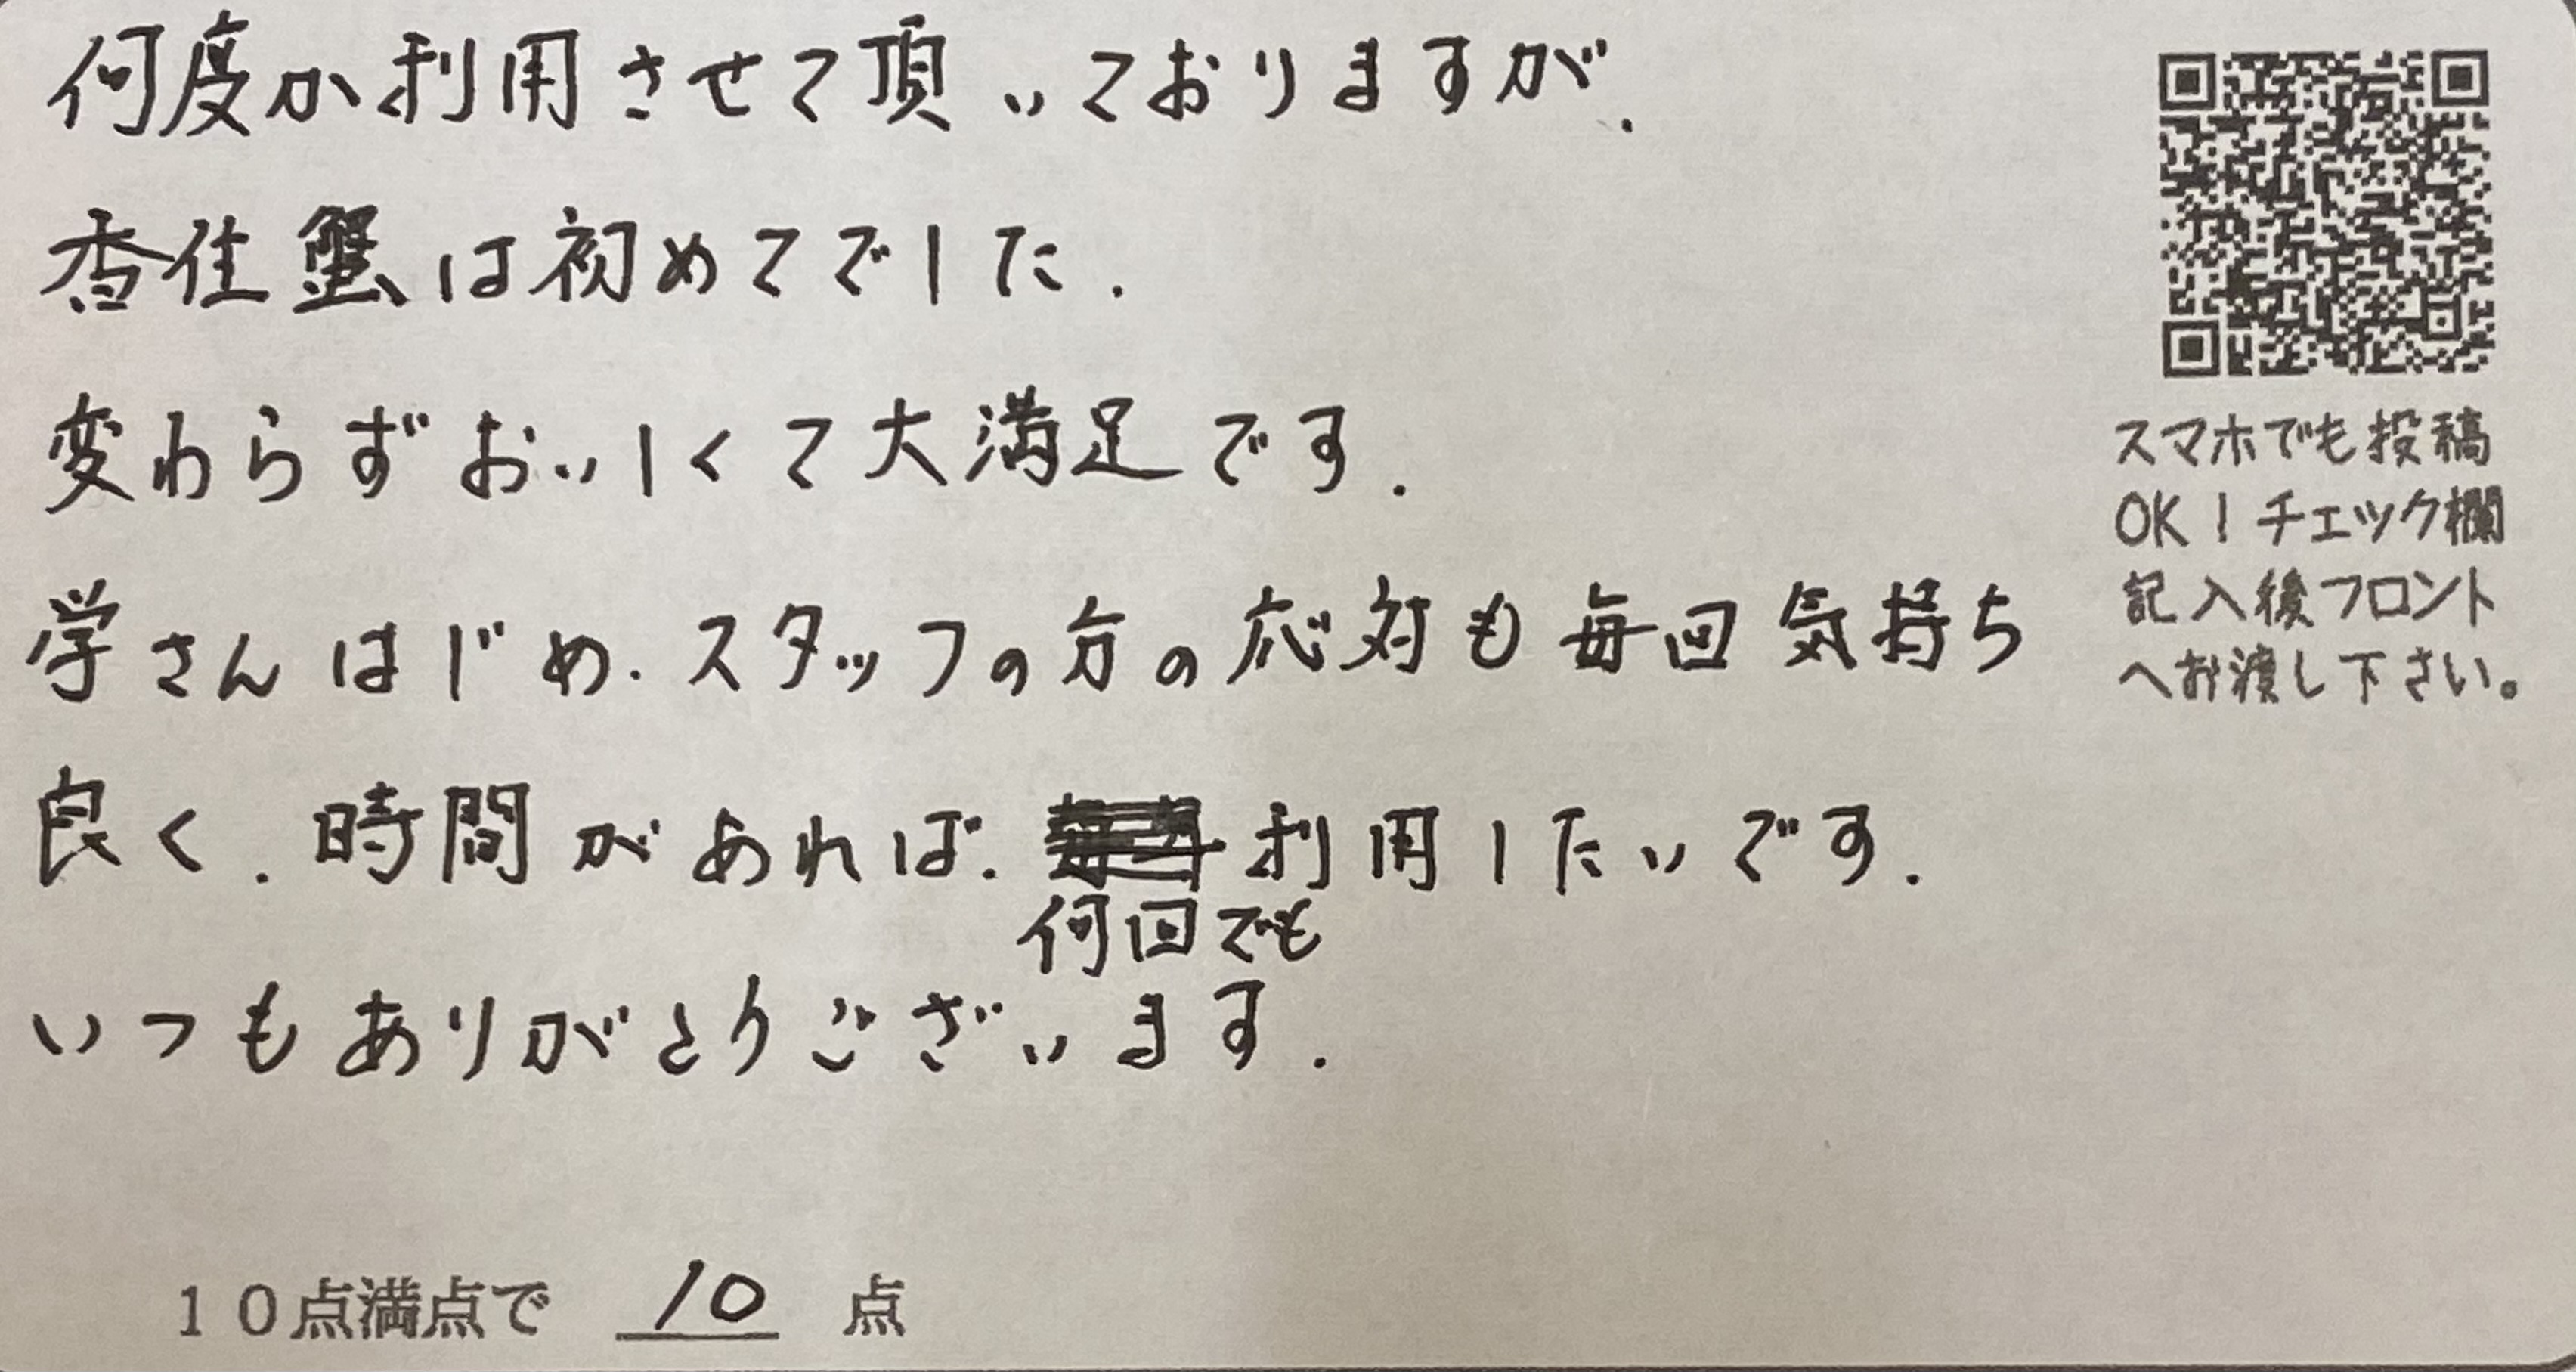 何度か利用させて頂いておりますが.
香住蟹は初めてでした.
変わらずおいしくて大満足です.
学さんはじめ.スタッフの方の応対も毎回気持ち
良く.時間があれば.利用したいです.
何回でも
いつもありがとうございます.
10点満点で 10 点
スマホでも投稿
OK!チェック欄
記入後フロント
へお渡し下さい。